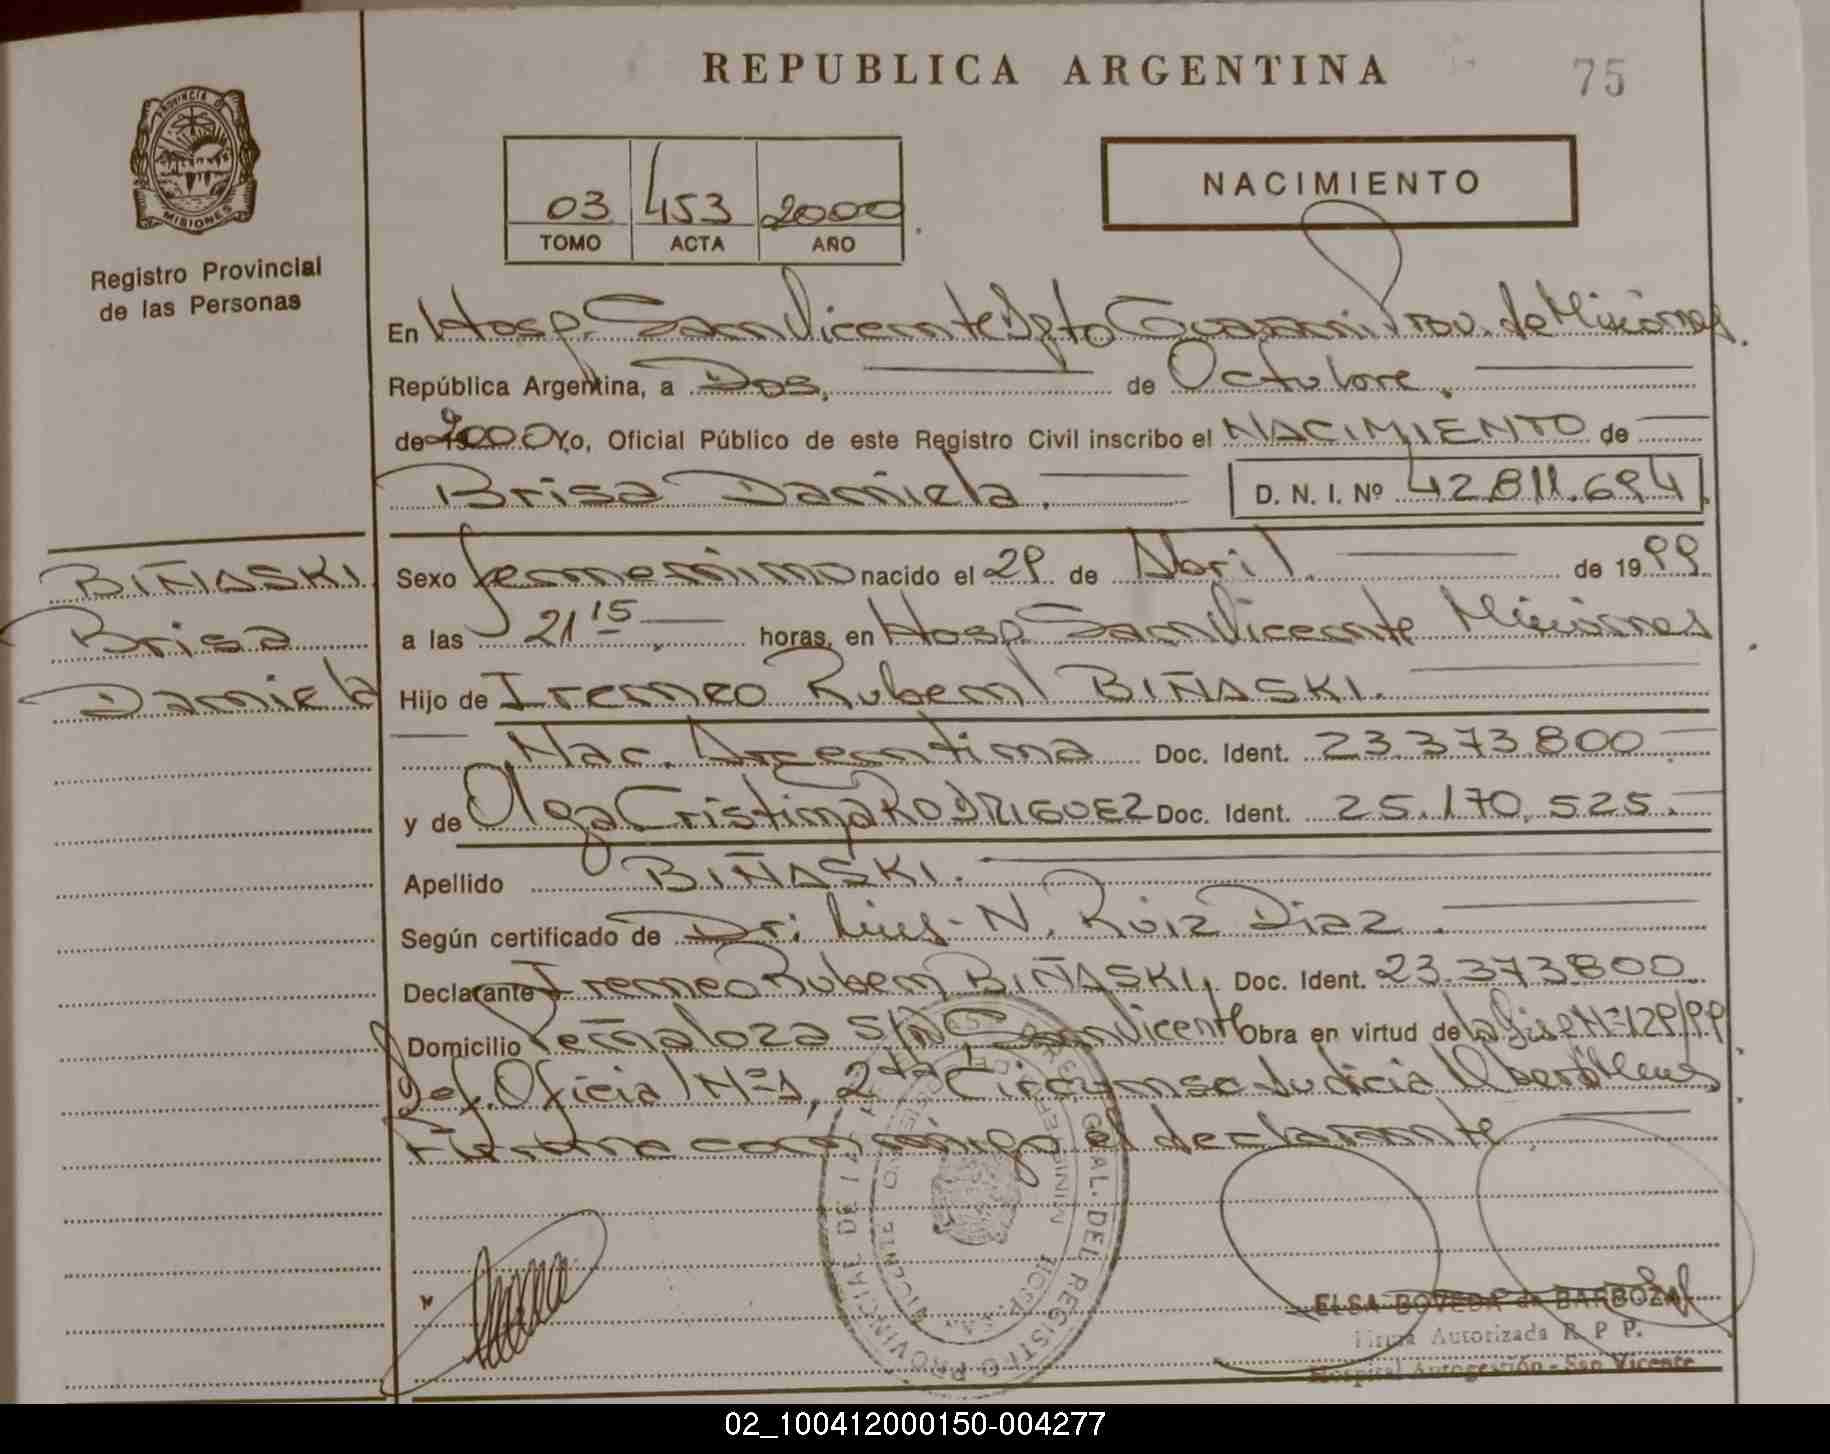 REPUBLICA ARGENTINA
75
PROVINCIA DE
MISIONES
Registro Provincial
de las Personas
03 453 2000
TOMO ACTA AÑO
NACIMIENTO
En Hosp. San Vicente Dpto Guarani Prov. de Misiones.
República Argentina, a Dos, de Octubre.
de 2000 Yo, Oficial Público de este Registro Civil inscribo el NACIMIENTO de
Brisa Daniela. D. N. I. Nº 42.811.694
BIÑASKI
Brisa
Daniela
Sexo femenino nacido el 29 de Abril. de 1999.
a las 21 15 horas, en Hosp. San Vicente Misiones
Hijo de Ireneo Ruben BIÑASKI.
Nac. Argentina Doc. Ident. 23.373.800
y de Olga Cristina RODRIGUEZ Doc. Ident. 25.170.525.
Apellido BIÑASKI.
Según certificado de Dr: Luis N. Ruiz Diaz.
Declarante Ireneo Ruben BIÑASKI, Doc. Ident. 23.373.800
Domicilio Peñaloza S/N San Vicente Obra en virtud de la Nº 129/99
Def. Oficial Nº 1, 2da Circunsc Judicial Obera
Firma conmigo el declarante.
GRAL. DEL REGISTRO PROVINCIAL DE
ELSA BOVEDA de BARBOZA
Firma Autorizada R. P. P.
Hospital Autogestión - San Vicente
02_100412000150-004277